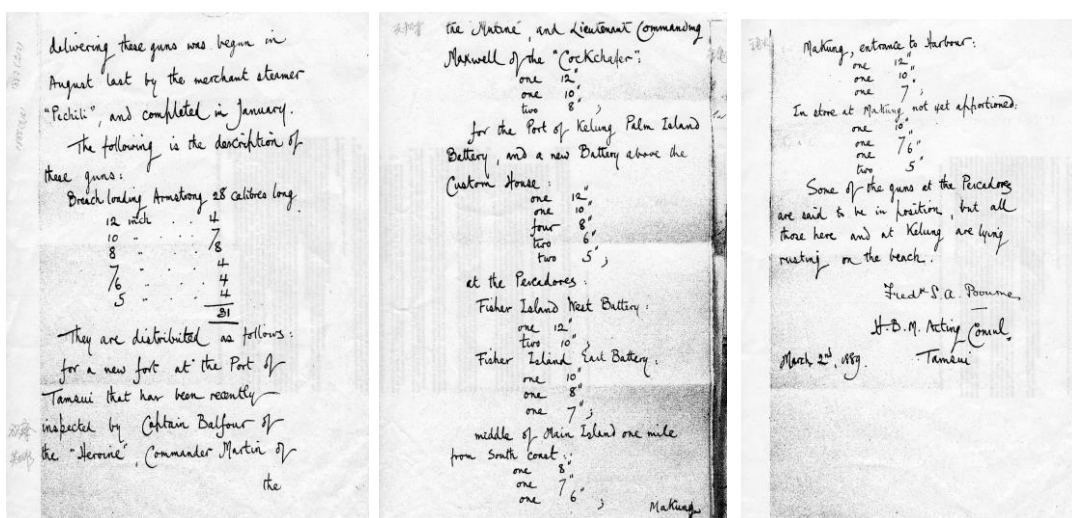 delivering these guns was begun in
August last by the merchant steamer
"Pechili", and completed in January.
The following is the description of
these guns:
Breach loading Armstrong 28 calibres long
12 inch . . . 4
10 " . . . 7
8 " . . . 8
7 " . . . 4
6 " . . . 4
5 " . . . 4
31
They are distributed as follows:
for a new fort at the Port of
Tamsui that has been recently
inspected by Captain Balfour of
the "Heroine", Commander Martin of
the
the "Mutine", and Lieutenant Commanding
Maxwell of the "Cockchafer":
one 12"
one 10"
two 8" ;
for the Port of Kelung Palm Island
Battery, and a new Battery above the
Custom House:
one 12"
one 10"
four 8"
two 6"
two 5" ;
at the Pescadores:
Fisher Island West Battery:
one 12"
two 10" ;
Fisher Island East Battery:
one 10"
one 8"
one 7" ;
middle of Main Island one mile
from South coast:
one 8"
one 7"
one 6" ;
Makung
Makung, entrance to Harbour:
one 12"
one 10"
one 7" ;
In store at Makung, not yet apportioned:
one 10"
one 7"
one 6"
two 5"
Some of the guns at the Pescadores
are said to be in position, but all
those here and at Kelung are lying
rusting on the beach.
Fredk S. A. Bourne
H.B.M. Acting Consul,
March 2nd, 1889. Tamsui